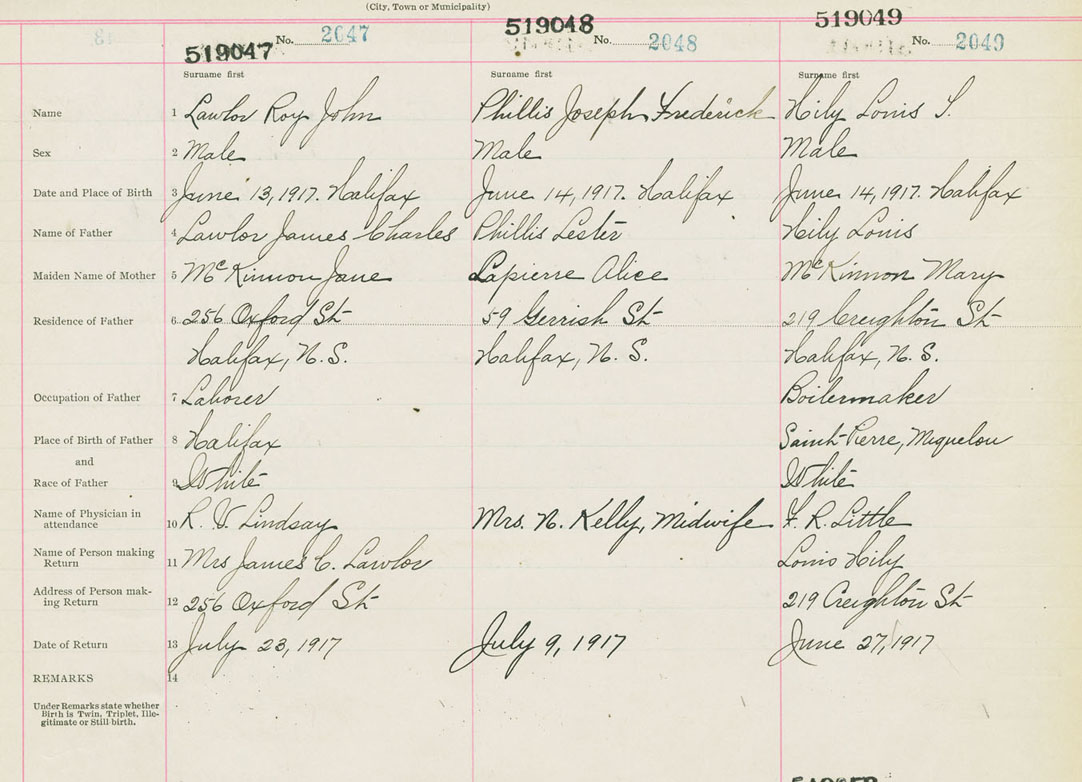 (City, Town or Municipality)
519047 No. 2047 519048 No. 2048 519049 No. 2049
Surname first Surname first Surname first
Name 1 Lawlor Roy John Phillis Joseph Frederick Hily Louis S.
Sex 2 Male Male Male
Date and Place of Birth 3 June 13, 1917. Halifax June 14, 1917. Halifax June 14, 1917. Halifax
Name of Father 4 Lawlor James Charles Phillis Lester Hily Louis
Maiden Name of Mother 5 McKinnon Jane Lapierre Alice McKinnon Mary
Residence of Father 6 256 Oxford St 59 Gerrish St 219 Creighton St
Halifax, N.S. Halifax, N.S. Halifax, N.S.
Occupation of Father 7 Laborer Boilermaker
Place of Birth of Father 8 Halifax Saint-Pierre, Miquelon
and
Race of Father 9 White White
Name of Physician in
attendance 10 R. V. Lindsay Mrs. N. Kelly, Midwife F. R. Little
Name of Person making
Return 11 Mrs James C. Lawlor Louis Hily
Address of Person mak-
ing Return 12 256 Oxford St 219 Creighton St
Date of Return 13 July 23, 1917 July 9, 1917 June 27, 1917
REMARKS 14
Under Remarks state whether
Birth is Twin, Triplet, Ille-
gitimate or Still-birth.